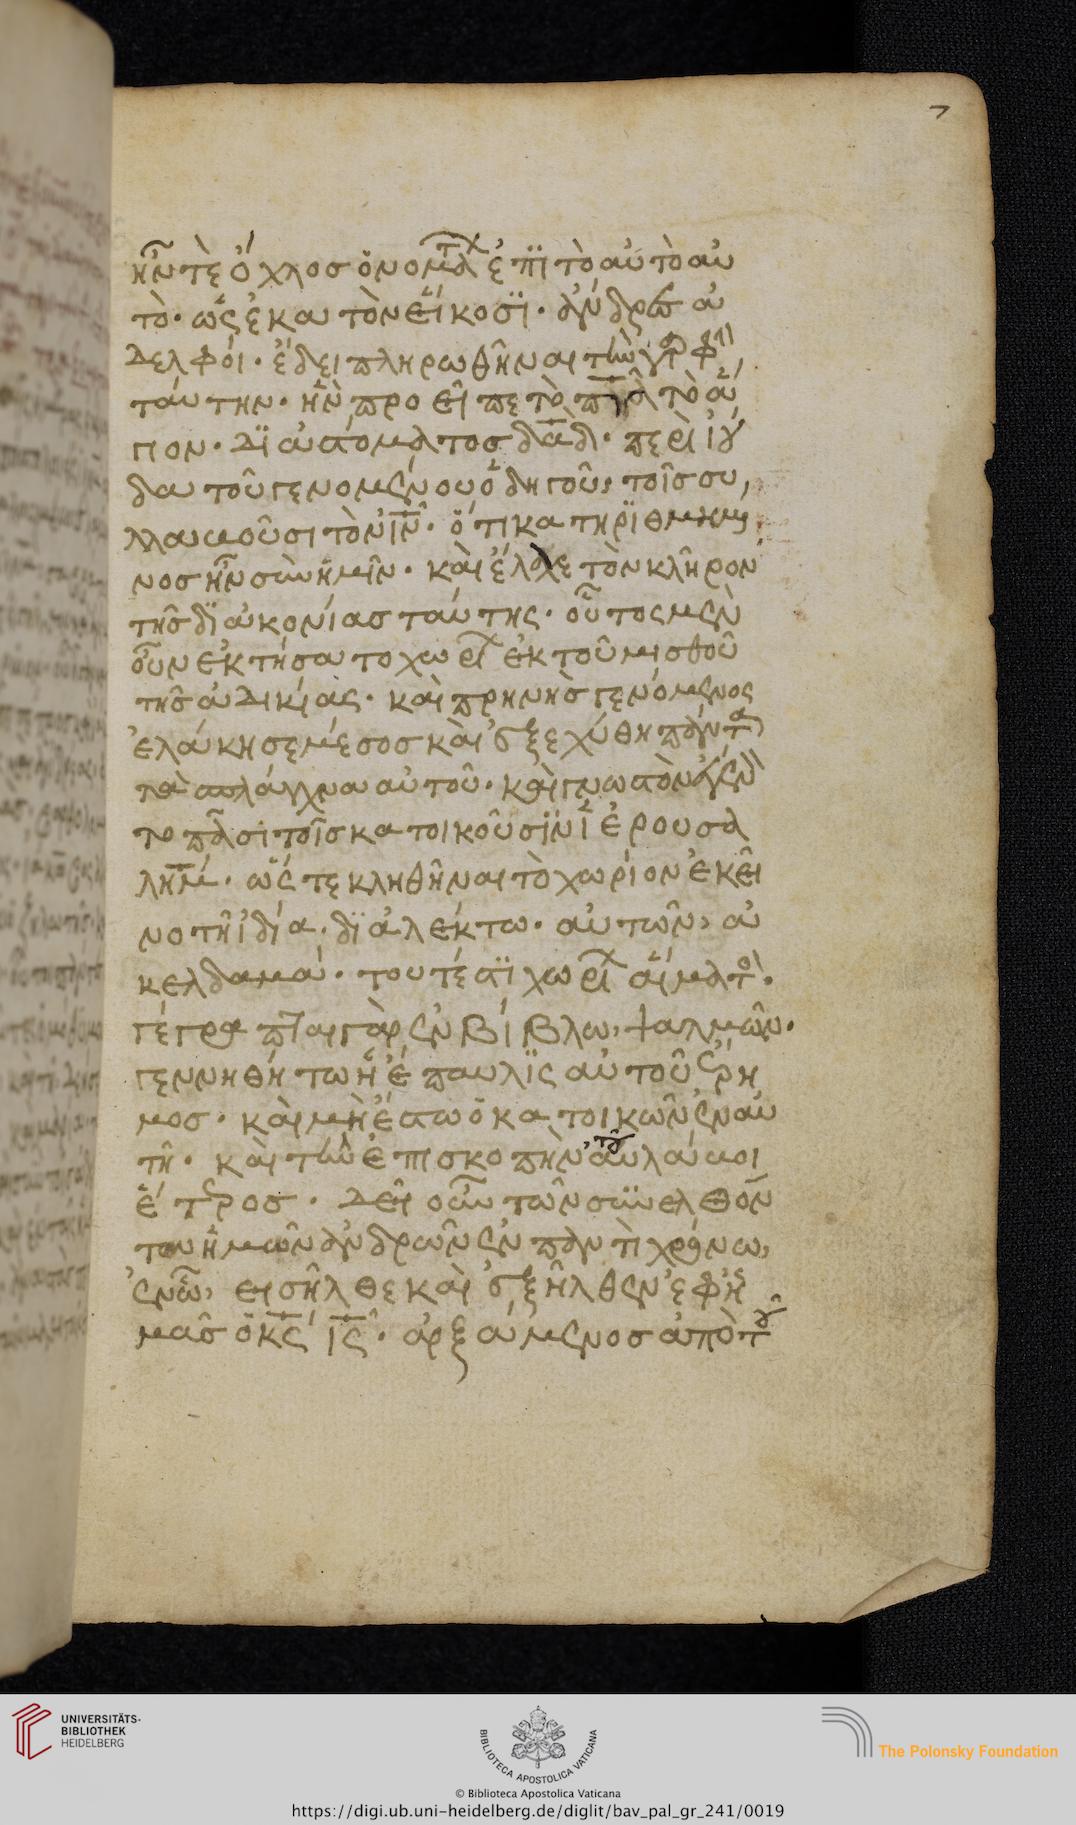 7
ἦν τὲ ὄχλος ὀνομάτων ἐπϊτὸαὐτὸ αὐ
τὸ· ὡς ἑκατὸν εἴκοσϊ· ἄνδρες ἀ
δελφόι· ἔδει πληρωθῆναι τὴν γραφὴν
ταύτην· ἣν προεῖπε τὸ πνα τὸ ἅ
γιον· δϊὰ στόματος δαδ· περὶ ἰού
δα τοῦ γενομένου ὁδηγοῦ, τοῖς συ
λλαμβοῦσι τὸν ιν· ὅτι κατηρϊθμημέ
νος ἦν σὺν ἡμῖν· καὶ ἔλαχε τὸν κλῆρον
τῆς δϊακονίας ταύτης· οὗτος μὲν
οὖν ἐκτήσατο χωρίον ἐκ τοῦ μισθοῦ
τῆς ἀδικίας· καὶ πρηνὴς γενόμενος
ἐλάκησε μέσος καὶ ἐξεχύθη πάντα
τὰ σπλάγχνα αὐτοῦ· καὶ γνωστὸν ἐγένε
το πᾶσι τοῖς κατοικοῦσϊν ἱερουσα
λημ· ὥστε κληθῆναι τὸ χωρίον ἐκεῖ
νο τῆ ἰδία· δϊαλέκτω· αὐτῶν, ἀ
κελδαμά· τουτέστϊ χωρίον αἵματος·
γέγραπται γὰρ ἐν βίβλω, ψαλμῶν·
γεννηθήτω ἡ ἔπαυλϊς αὐτοῦ ἔρη
μος· καὶ μὴ ἔστω ὁ κατοικῶν ἐν αὐ
τῆ· καὶ τὴν ἐπισκοπὴν αὐτοῦ λάβοι
ἕτερος· δεῖ οὖν τῶν συνελθόν
των ἡμῶν ἀνδρῶν ἐν παντὶ χρόνω,
ἐν ὧ, εισῆλθε καὶ ἐξῆλθεν ἐφ ἡ
μᾶς ὁ κς ις· ἀρξάμενος ἀπὸ τοῦ
UNIVERSITÄTS-
BIBLIOTHEK
HEIDELBERG
BIBLIOTECA APOSTOLICA VATICANA
The Polonsky Foundation
© Biblioteca Apostolica Vaticana
https://digi.ub.uni-heidelberg.de/diglit/bav_pal_gr_241/0019